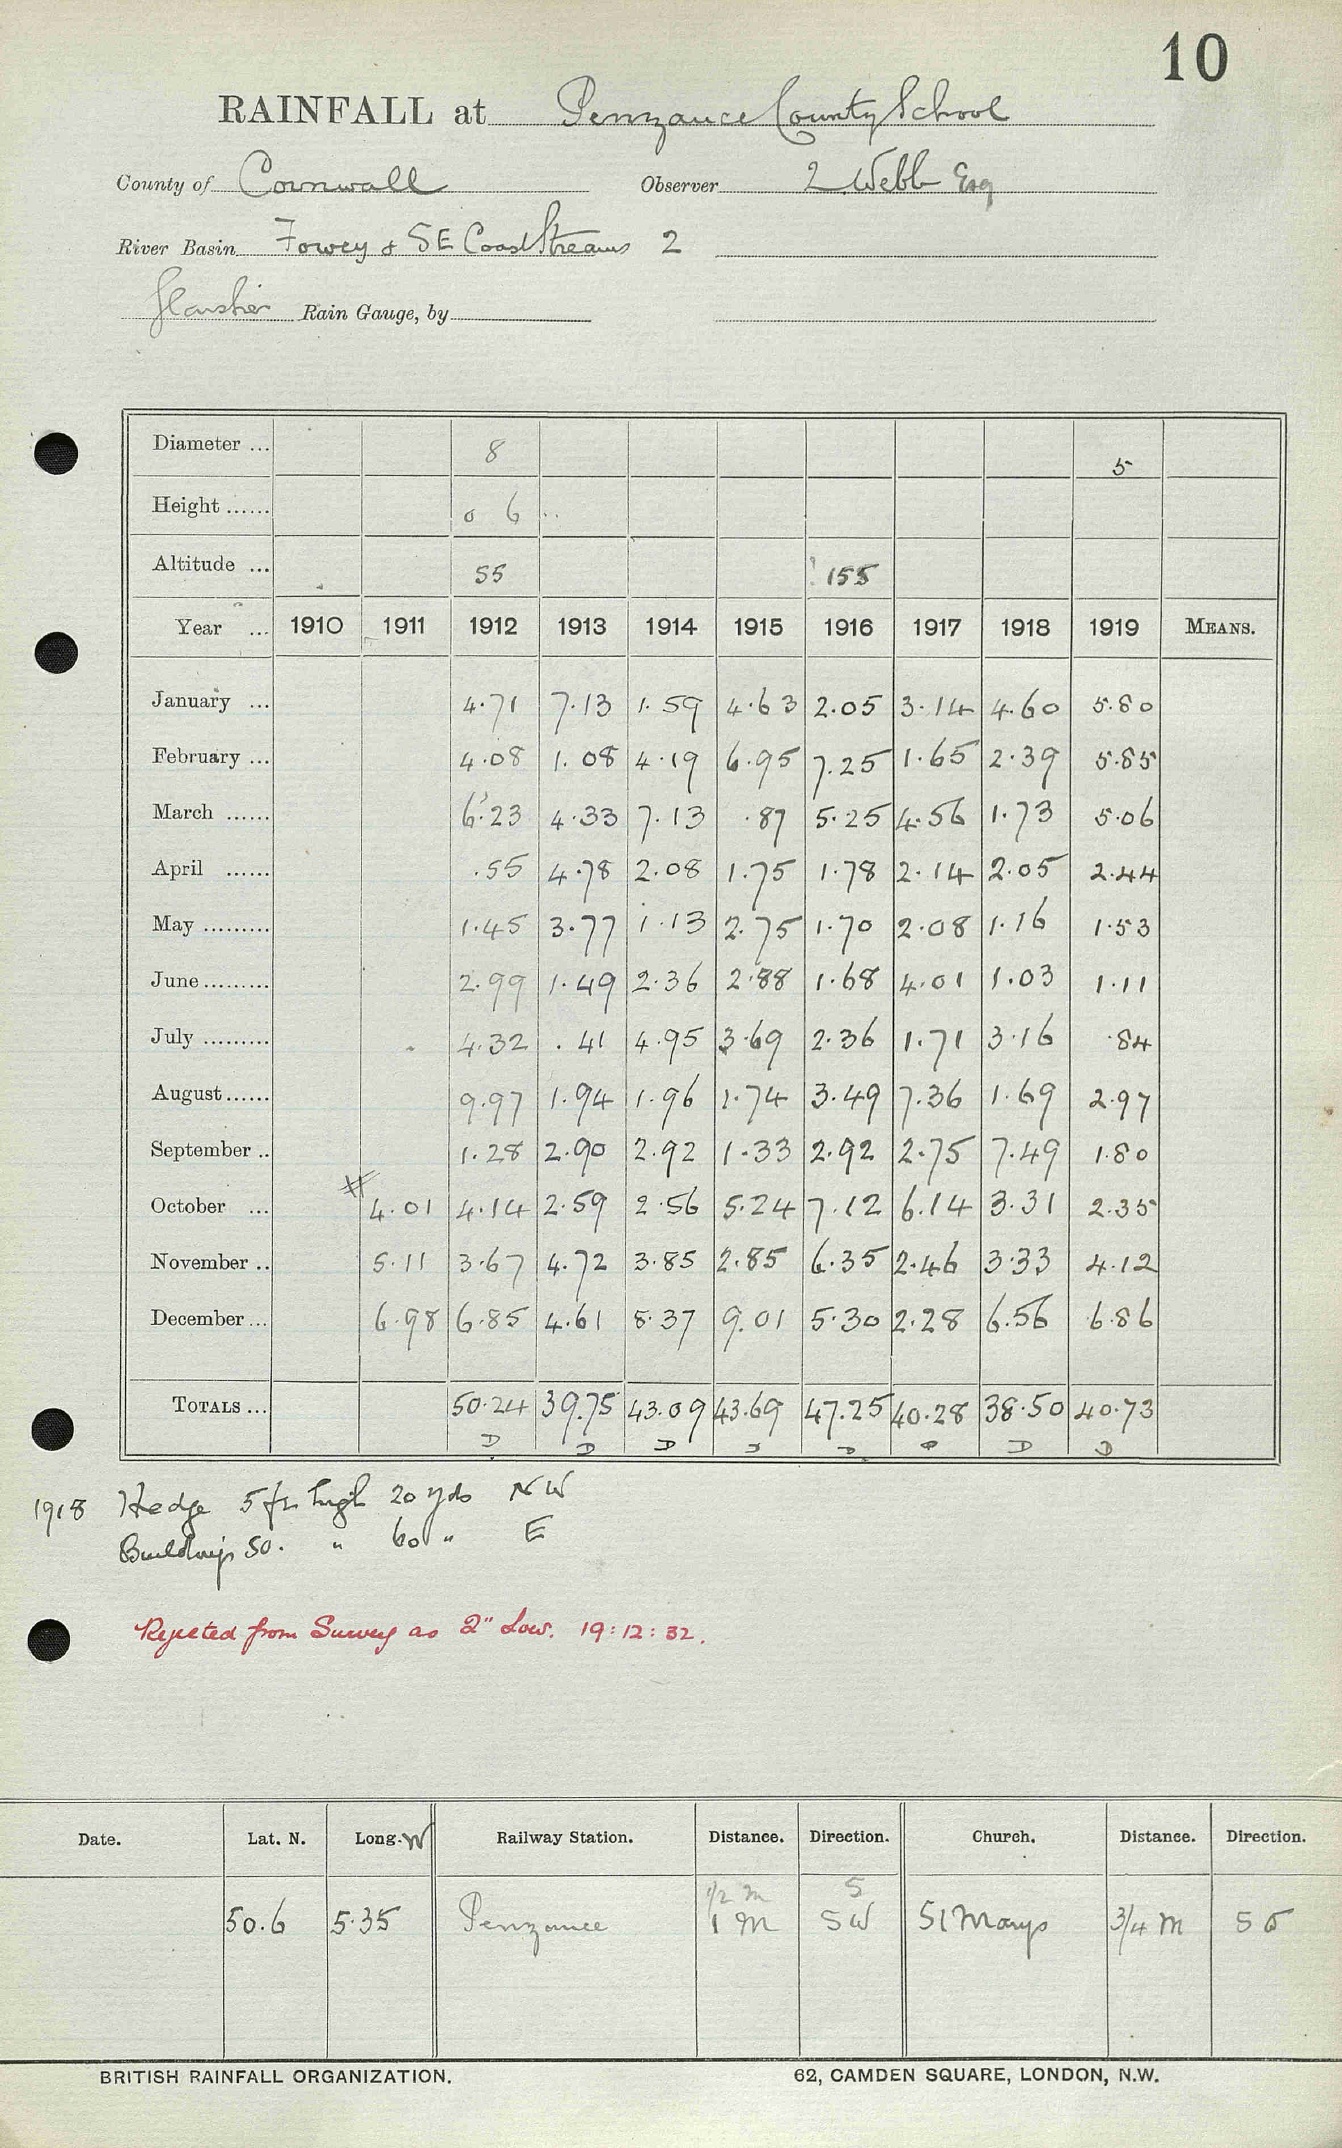 10
RAINFALL at Penzance County School
County of Cornwall Observer 2 Webb Esq
River Basin Fowey & SE Coast Streams 2
Glaisher Rain Gauge, by
Diameter ... 8 5
Height ...... 0 6 ..
Altitude ... 55 155
Year ... 1910 1911 1912 1913 1914 1915 1916 1917 1918 1919 MEANS.
January ... 4.71 7.13 1.59 4.63 2.05 3.14 4.60 5.80
February ... 4.08 1.08 4.19 6.95 7.25 1.65 2.39 5.85
March ...... 6.23 4.33 7.13 .87 5.25 4.56 1.73 5.06
April ...... .55 4.78 2.08 1.75 1.78 2.14 2.05 2.44
May ......... 1.45 3.77 1.13 2.75 1.70 2.08 1.16 1.53
June ......... 2.99 1.49 2.36 2.88 1.68 4.01 1.03 1.11
July ......... 4.32 .41 4.95 3.69 2.36 1.71 3.16 .84
August ...... 9.97 1.94 1.96 1.74 3.49 7.36 1.69 2.97
September .. 1.28 2.90 2.92 1.33 2.92 2.75 7.49 1.80
October ... # 4.01 4.14 2.59 2.56 5.24 7.12 6.14 3.31 2.35
November .. 5.11 3.67 4.72 3.85 2.85 6.35 2.46 3.33 4.12
December ... 6.98 6.85 4.61 8.37 9.01 5.30 2.28 6.56 6.86
TOTALS ... 50.24 39.75 43.09 43.69 47.25 40.28 38.50 40.73
D D D D D D
1918 Hedge 5 ft high 20 yds NW
Buildings 50. " 60 " E
Rejected from Survey as 2" Low. 19:12:32.
Date. Lat. N. Long. W Railway Station. Distance. Direction. Church. Distance. Direction.
1/2 m S
50.6 5.35 Penzance 1 m SW St Marys 3/4 m
BRITISH RAINFALL ORGANIZATION. 62, CAMDEN SQUARE, LONDON, N.W.